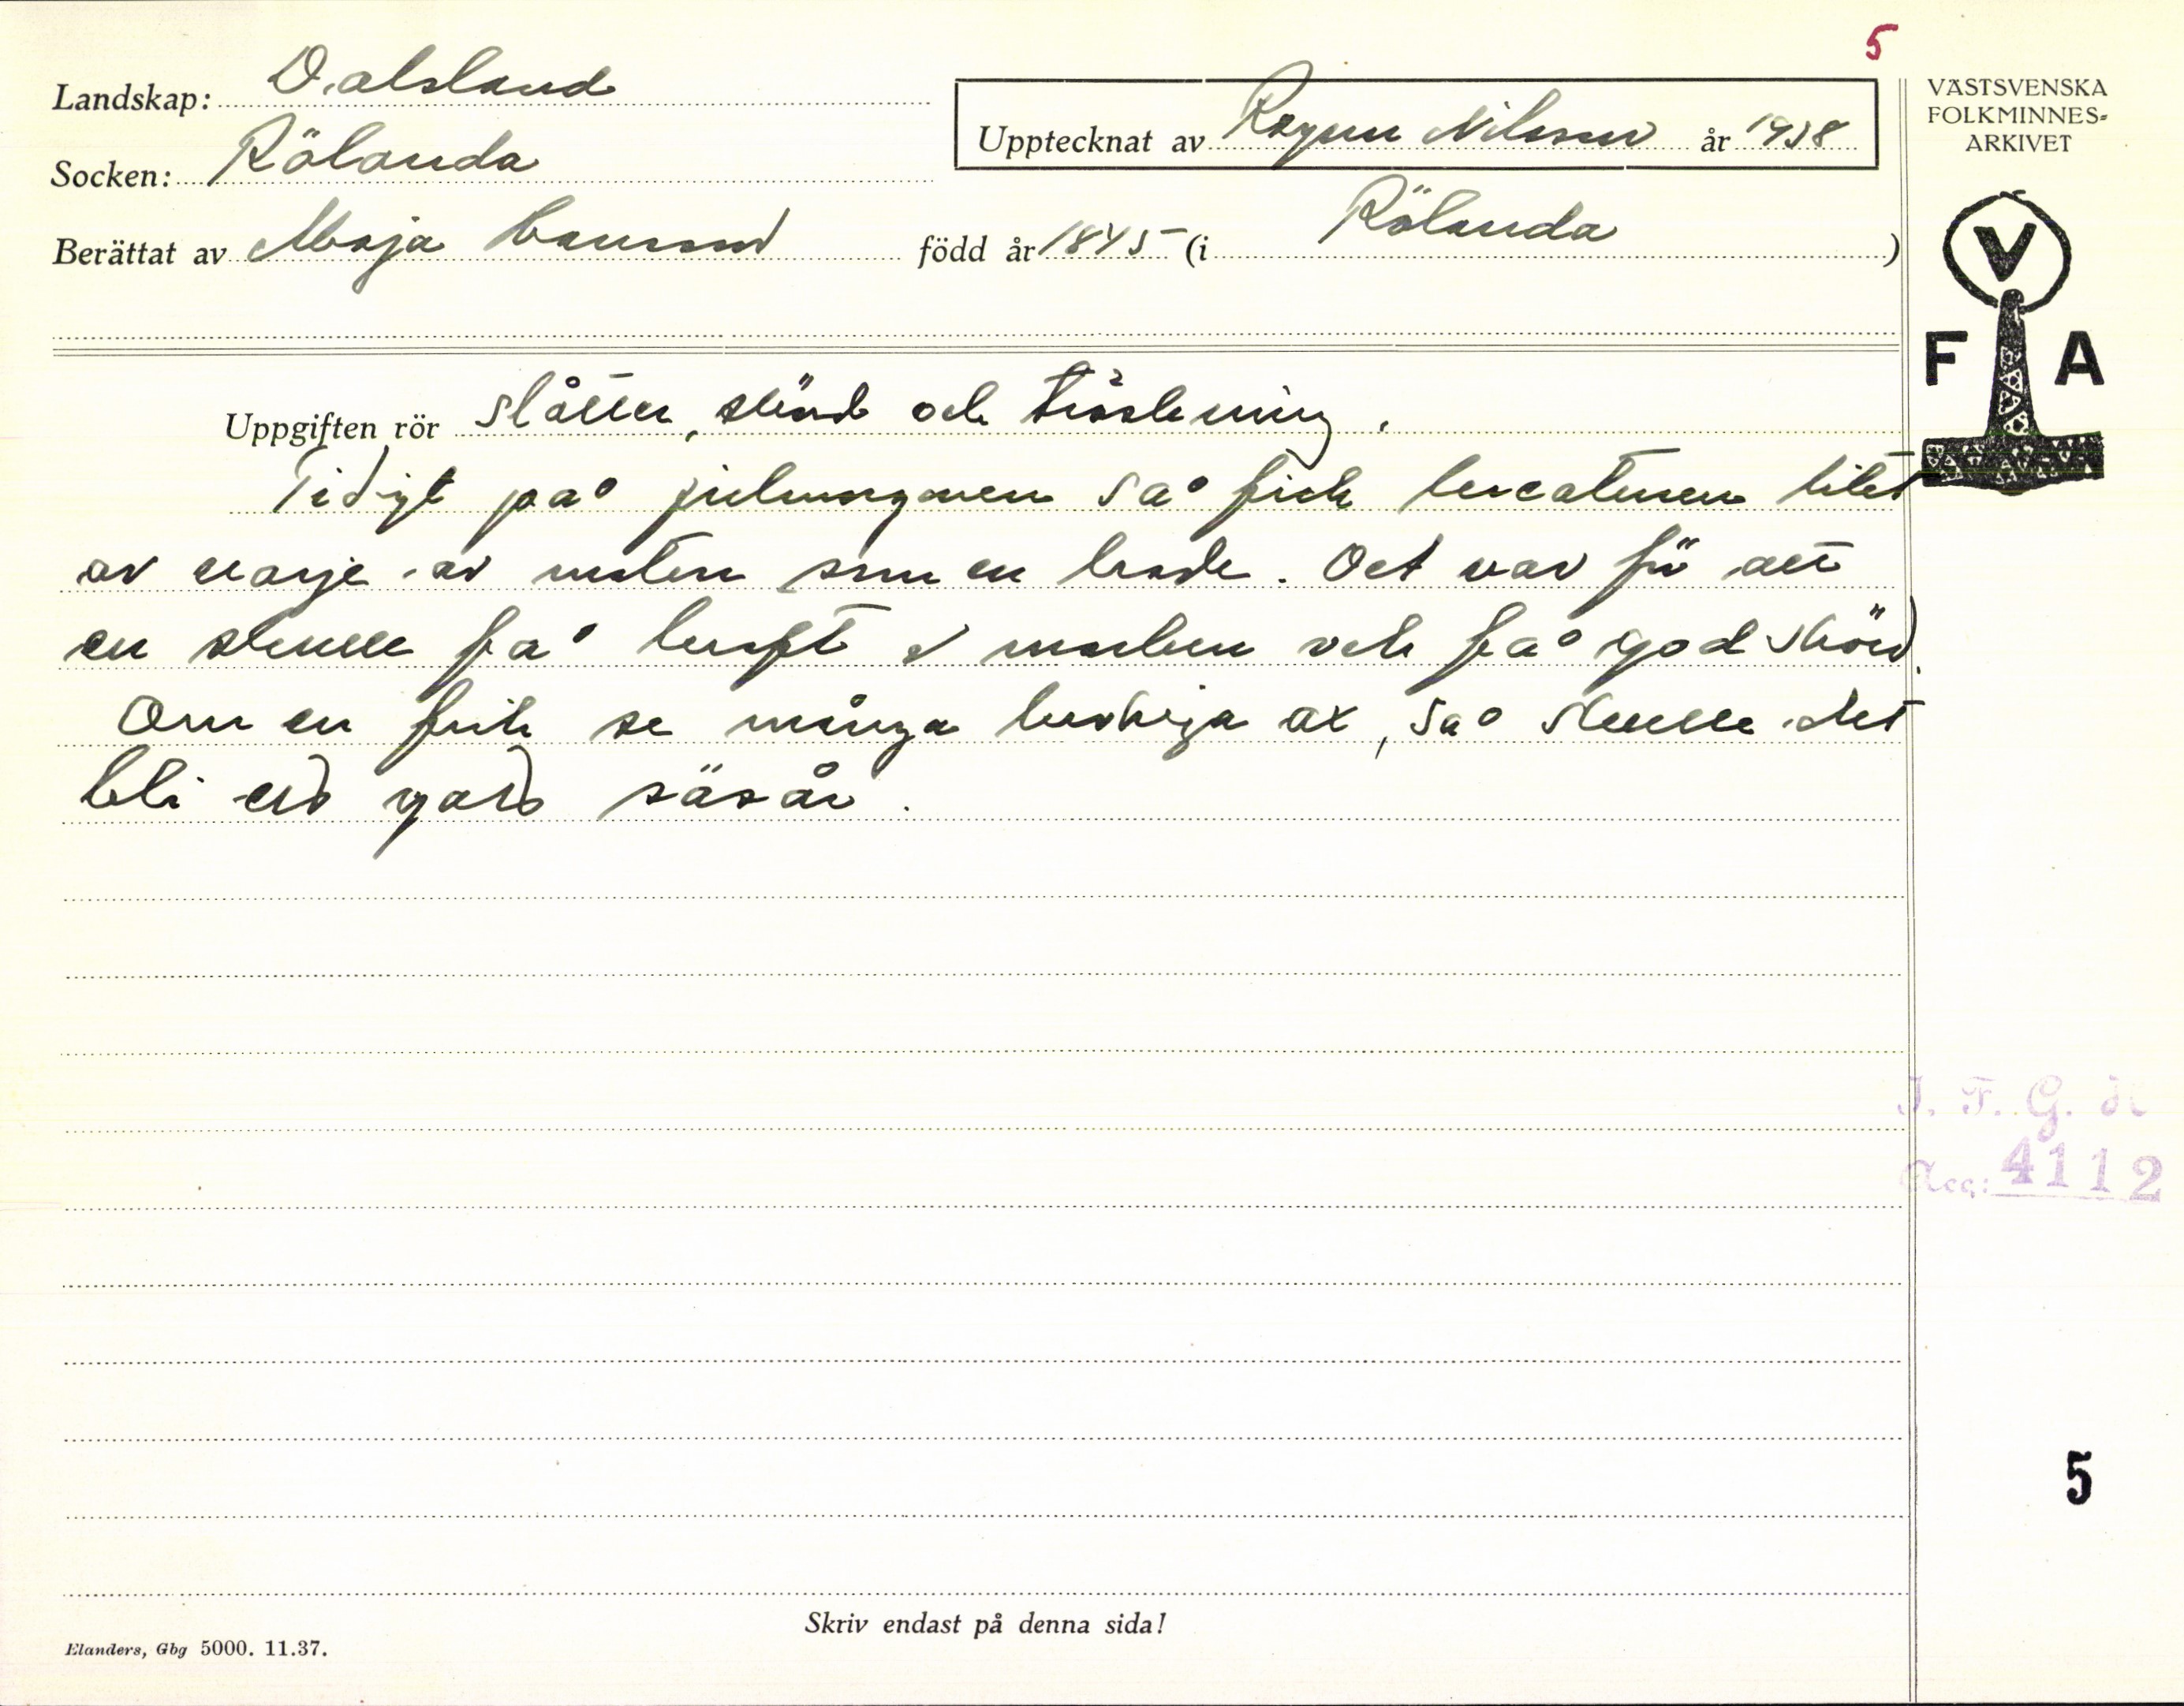 5
Landskap: Dalsland
Socken: Rölanda
Berättat av Maja
född år 1845 (i Rölanda)
Upptecknat av Ragnar Nilsson år 1938
VÄSTSVENSKA
FOLKMINNES-
ARKIVET
V
F A
Uppgiften rör slåtter, skörd och tröskning.
Tidigt på julmorgonen så fick kreaturen litet
av varje av maten som en hade. Det var för att
en skulle få kraft i marken och få god skörd.
Om en fick se många tveksiga ax, så skulle det
bli ett gott såår.
I. F. G. H
Acc: 4112
5
Skriv endast på denna sida!
Elanders, Gbg 5000. 11.37.